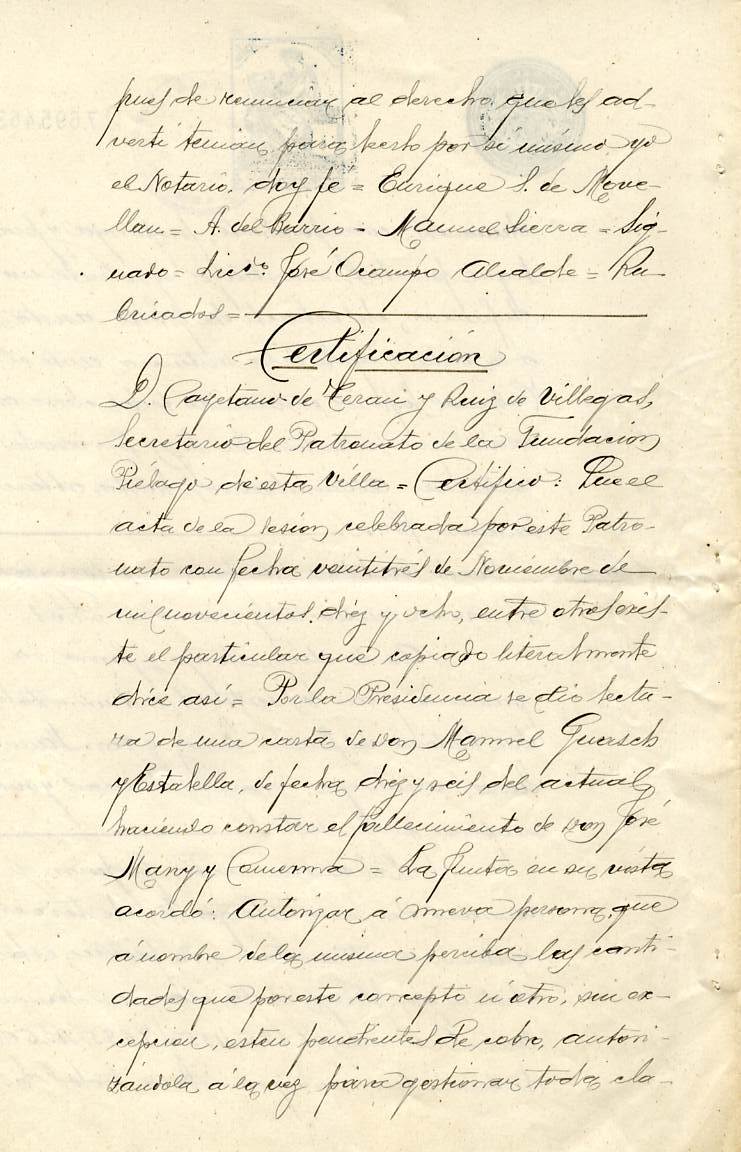 pues de renunciar al derecho que les ad-
vertí tenian, para leerlo por sí mismo yo
el Notario, doy fe = Enrique S. de Move-
llan = A. del Barrio = Manuel Sierra = Sig-
nado = Licdo. José Ocampo Alcalde = Ru-
bricados =
Certificación
D. Cayetano de Teran y Ruiz de Villegas,
Secretario del Patronato de la Fundacion
Piélago de esta Villa = Certifico: Que el
acta de la sesion celebrada por este Patro-
nato con fecha veintitrés de Noviembre de
mil novecientos diez y ocho, entre otros exis-
te el particular que copiado literalmente
dice así = Por la Presidencia se dio lectu-
ra de una carta de Don Manuel Guasch
y Estalella, de fecha diez y seis del actual
haciendo constar el fallecimiento de Don José
Many y Comerma = La Junta en su vista
acordó: Autorizar á nueva persona que
á nombre de la misma perciba las canti-
dades que por este concepto ú otro, sin ex-
cepcion, esten pendientes de cobro, autori-
zándola á la vez para gestionar toda cla-